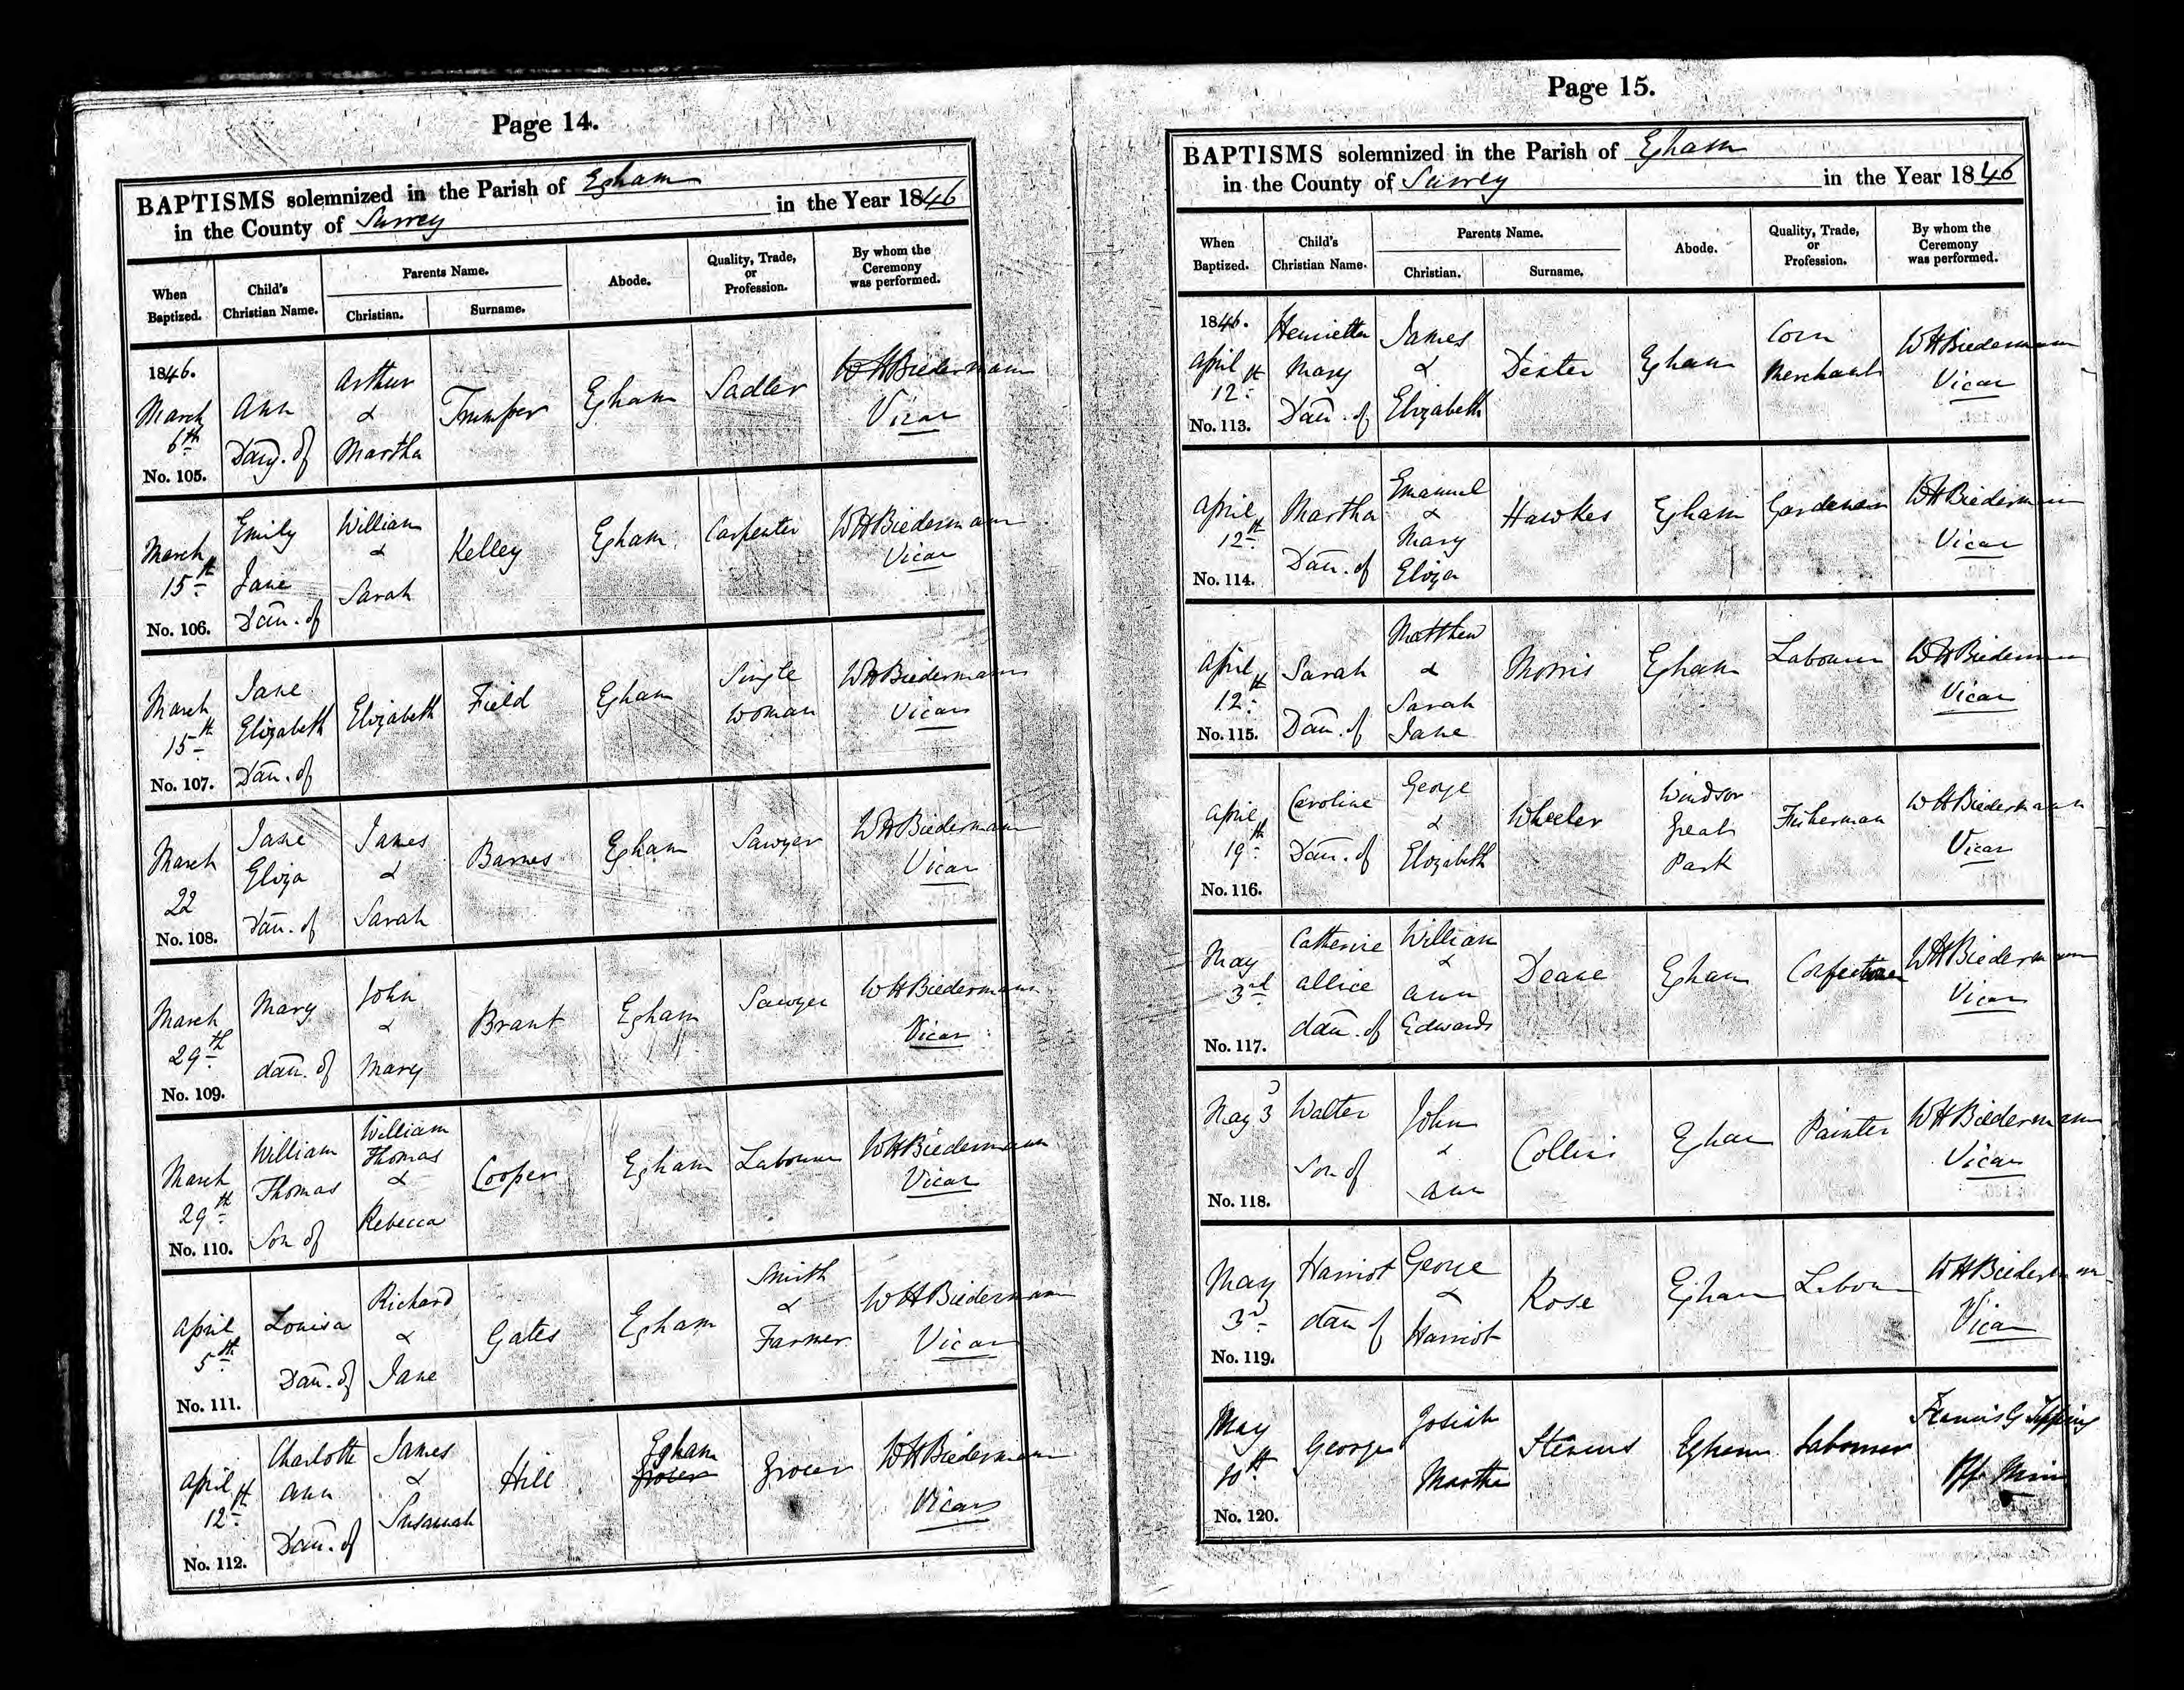 Page 14.
BAPTISMS solemnized in the Parish of Egham
in the County of Surrey in the Year 1846
When Baptized. Child's Christian Name. Parents Name. Christian. Surname. Abode. Quality, Trade, or Profession. By whom the Ceremony was performed.
1846. March 6th No. 105. Ann Daug. of Arthur & Martha Trumper Egham Sadler W H Biedermann Vicar
March 15th No. 106. Emily Jane Dau. of William & Sarah Kelley Egham Carpenter W H Biedermann Vicar
March 15th No. 107. Jane Elizabeth Dau. of Elizabeth Field Egham Single woman W H Biedermann Vicar
March 22 No. 108. Jane Eliza Dau. of James & Sarah Barnes Egham Sawyer W H Biedermann Vicar
March 29th No. 109. Mary dau. of John & Mary Brant Egham Sawyer W H Biedermann Vicar
March 29th No. 110. William Thomas Son of William Thomas & Rebecca Cooper Egham Labourer W H Biedermann Vicar
April 5th No. 111. Louisa Dau. of Richard & Jane Gates Egham Smith & Farmer W H Biedermann Vicar
April 12th No. 112. Charlotte Ann Dau. of James & Susannah Hill Egham Grocer Grocer W H Biedermann Vicar
Page 15.
BAPTISMS solemnized in the Parish of Egham
in the County of Surrey in the Year 1846
When Baptized. Child's Christian Name. Parents Name. Christian. Surname. Abode. Quality, Trade, or Profession. By whom the Ceremony was performed.
1846. April 12th No. 113. Henrietta Mary Dau. of James & Elizabeth Dexter Egham Corn Merchant W H Biedermann Vicar
April 12th No. 114. Martha Dau. of Emanuel & Mary Eliza Hawkes Egham W H Biedermann Vicar
April 12th No. 115. Sarah Dau. of Matthew & Sarah Jane Morris Egham Labourer W H Biedermann Vicar
April 19th No. 116. Caroline Dau. of George & Elizabeth Wheeler Windsor Great Park Fisherman W H Biedermann Vicar
May 3rd No. 117. Catherine Allice dau. of William & Ann Edwards Deane Egham W H Biedermann Vicar
May 3 No. 118. Walter Son of John & Ann Collins Egham Painter W H Biedermann Vicar
May 3rd No. 119. Harriot dau of George & Harriot Rose Egham Labour W H Biedermann Vicar
May 10th No. 120. George Josiah Martha Stevens Egham Labourer Francis G Tipping Off. Min